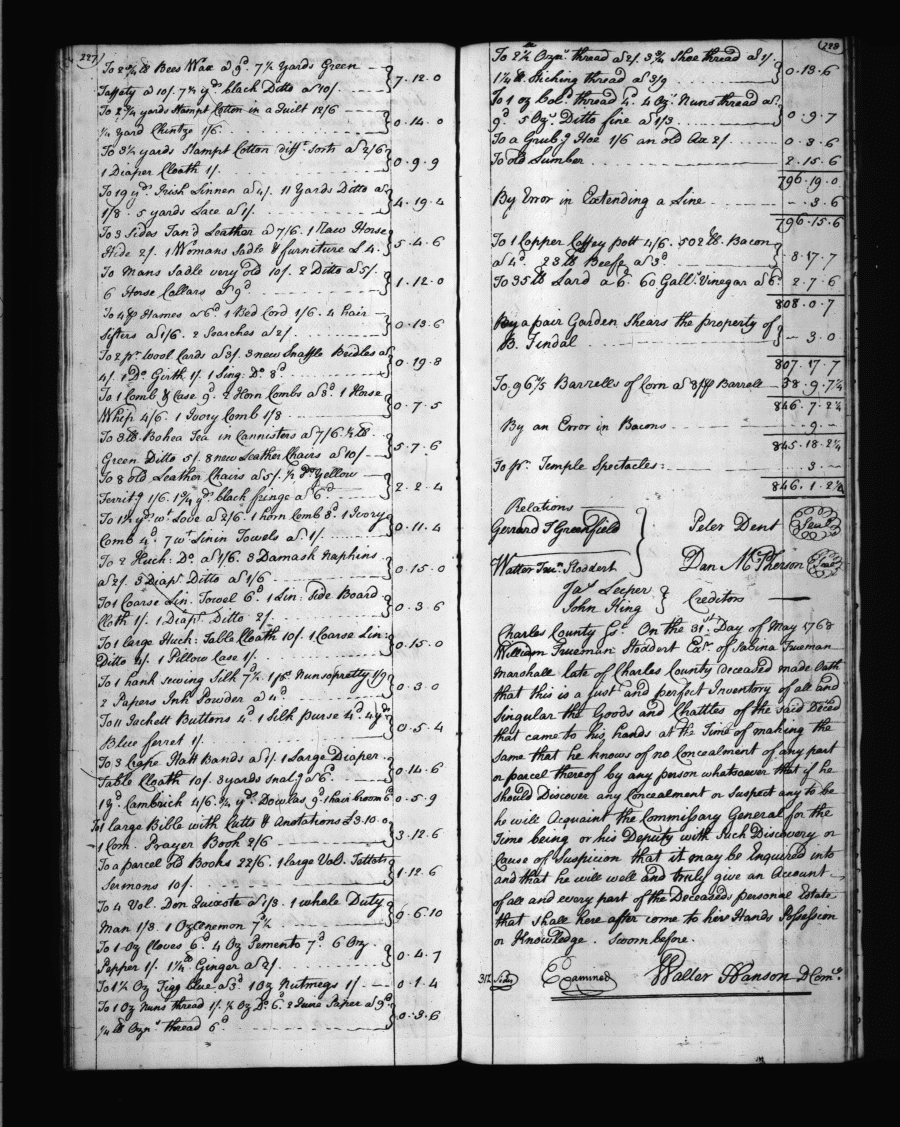 227
To 2 3/4 lb Bees Wax a 9d. 7 1/4 Yards Green
Taffety a 10/. 7 1/4 yds. black Ditto a 10/. } 7.12.0
To 2 3/4 yards Stampt Cotton in a Quilt 12/6
1/4 Yard Chintze 1/6. } 0.14.0
To 3 1/4 yards Stampt Cotton difft. sorts a 2/6
1 Diaper Cloath 1/. } 0.9.9
To 19 yds. Irish Linnen a 4/. 11 Yards Ditto a
1/8. 5 yards Lace a 1/. } 4.19.4
To 3 Sides Tan'd Leather a 7/6. 1 Raw Horse
Hide 2/. 1 Womans Sadle & furniture £4. } 5.4.6
To Mans Sadle very old 10/. 2 Ditto a 5/.
6 Horse Collars a 9d. } 1.12.0
To 4 pr Hames a 6d 1 Bed Cord 1/6. 4 hair
Sifters a 1/6. 2 Searches a 2/. } 0.13.6
To 2 pr. Wool Cards a 3/. 3 new Snaffle Bridles a
4/. 1 Do. Girth 1/. 1 Sing: Do. 8d } 0.19.8
To 1 Comb & Case 9d. 2 Horn Combs a 3d. 1 Horse
Whip 4/6. 1 Ivory Comb 1/8 } 0.7.5
To 3 lb Bohea Tea in Cannisters a 7/6. 1/2 lb.
Green Ditto 5/. 8 new Leather Chairs a 10/ } 5.7.6
To 8 old Leather Chairs a 5/. 1/2 Do Yellow
Ferritg 1/6. 1 3/4 yd. black fringe a 6d } 2.2.4
To 1 1/4 yd. wt. Love a 2/6. 1 horn Comb 8d. 1 Ivory
Comb 4d. 7 wt Linin Towels a 1/. } 0.11.4
To 2 Huck: Do. a 1/6. 3 Damask Napkins
a 2/. 3 Diapr. Ditto a 1/6 } 0.15.0
To 1 Coarse Lin. Towel 6d. 1 Lin: Side Board
Cloth 1/. 1 Diapr. Ditto 2/. } 0.3.6
To 1 large Huck: Table Cloath 10/. 1 Coarse Lin:
Ditto 4/. 1 Pillow Case 1/. } 0.15.0
To 1 hank sewing Silk 7 1/2. Nunsopretty 1/9
2 Papers Ink Powder a 4d. } 0.3.0
To 11 Jackett Buttons 4d. 1 Silk Purse 4d. 4 yds
Blue ferret 1/. } 0.5.4
To 3 Crape Hatt Bands a 1/. 1 Large Diaper
Table Cloath 10/. 3 yards a 6d. } 0.14.6
1 yd. Cambrick 4/6. 3/4 yd. Dowlas 9d. 1 hair broom 6d 0.5.9
To 1 large Bible with Cutts & Anotations £3.10.0
1 Com. Prayer Book 2/6 } 3.12.6
To a parcel old Books 22/6. 1 large Vol.
Sermons 10/. } 1.12.6
To 4 Vol. Don Quixote a 1/3. 1 whole Duty
Man 1/3. 1 Oz Cenemon 7d 1/2 } 0.6.10
To 1 Oz Cloves 6d. 4 Oz Pemento 7d. 6 Oz.
Pepper 1/. 1 1/4 lb Ginger a 2/. } 0.4.7
To 1 1/2 Oz Figg Blue a 3d. 1 Oz Nutmegs 1/ 0.1.4
To 1 Oz Nuns thread 1/. 1/2 Oz Do. 6d. 2 a 9d.
1/4 lb Ozns. thread 6d. } 0.3.6
228
To 2 1/4 lb Ozns. thread a 2/. 3 3/4 Shoe thread a 1/.
1 1/4 lb. Stiching thread a 3/9 } 0.13.6
To 1 oz Cold. thread 4d. 4 Ozs. Nuns thread a
9d. 5 Ozs. Ditto fine a 1/3. } 0.9.7
To a Grubg Hoe 1/6 an old Ax 2/. 0.3.6
To old Lumber 2.15.6
796.19.0
By Error in Extending a Line - 3.6
796.15.6
To 1 Copper Coffey pott 4/6. 502 lb. Bacon
a 4d. 23 lb Beefe a 3d. } 8.17.7
To 35 lb Lard a 6. 60 Gall. Vinegar a 6d 2.7.6
808.0.7
By a pair Garden Shears the property of
B. Tindal } - 3.0
807.17.7
To 96 1/5 Barrells of Corn a 8/ p Barrell 38.9.7 1/4
846.7.2 1/4
By an Error in Bacons - 9 -
845.18.2 1/4
To pr. Temple Spectacles: - 3 -
846.1.2 1/4
Relations
Gerrard T Greenfield } Peter Dent (Seal)
Walter Trun. Stoddert Dan McPherson (Seal)
Jas. Leeper } Creditors
John King
Charles County Sct. On the 31st. Day of May 1768
William Trueman Stoddert Exr. of Sabina Trueman
Marshall late of Charles County deceased made Oath
that this is a just and perfect Inventory of all and
Singular the Goods and Chattles of the said Deced
that came to his hands at the Time of making the
same that he knows of no Concealment of any part
or parcel thereof by any person whatsoever that if he
should Discover any Concealment or Suspect any to be
he will Acquaint the Commissary General for the
Time being or his Deputy with Such Discovery or
Cause of Suspicion that it may be Enquired into
and that he will well and truly give an Account
of all and every part of the Deceaseds personal Estate
that shall here after come to his Hands Possession
or Knowledge. Sworn before.
312 Sides Examined Walter Hanson DComy.